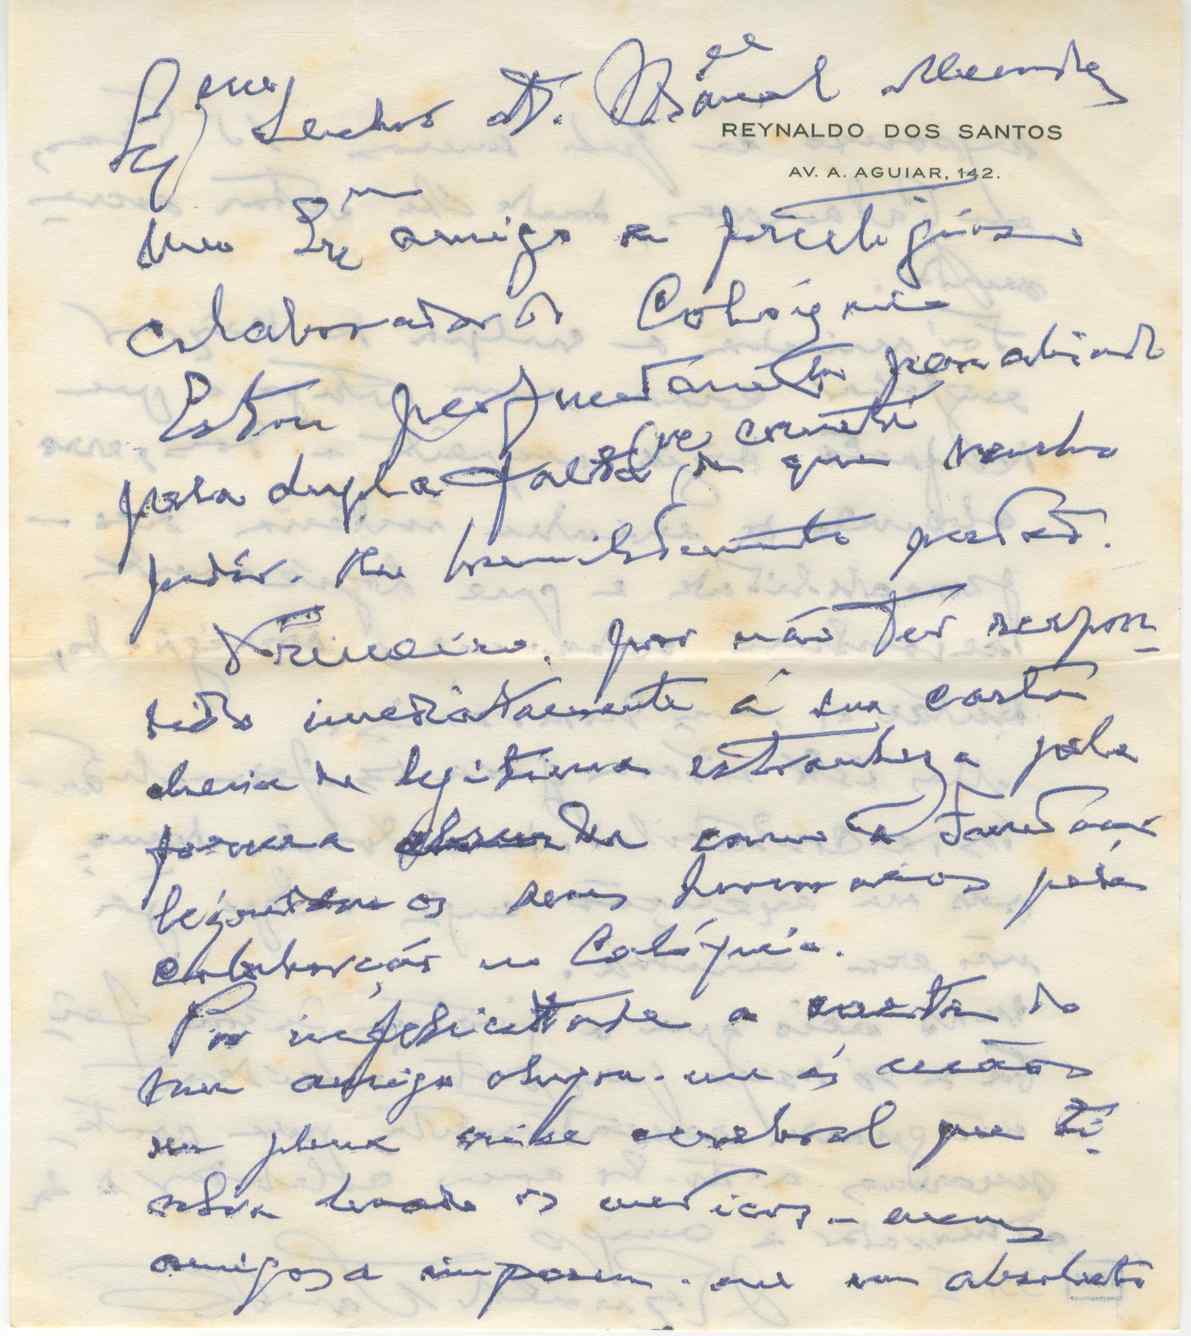 REYNALDO DOS SANTOS
AV. A. AGUIAR, 142.
Exmo Senhor Dr. Manuel Mendes
Meu Exmo amigo e prestigioso
colaborador do Colóquio
Estou perfeitamente penalizado
pela dupla falta que cometi de que venho
pedir-lhe humildemente perdão.
Primeiro, por não ter respon-
dido imediatamente á sua carta
cheia de legitima estranheza pela
forma como a Fundação
os seus honorarios pela
colaboração no Colóquio.
Por infelicidade a carta do
meu amigo chegou-me ás mãos
em plena crise cerebral que ti-
nha levado os medicos - meus
amigos a imporem-me um absoluto